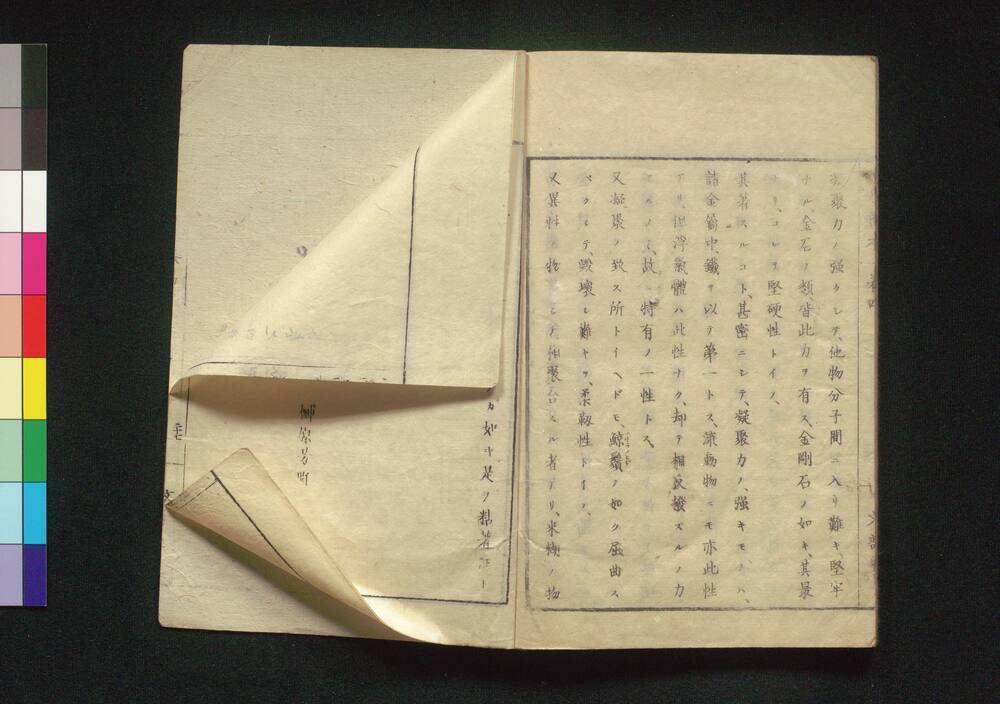 凝聚力ノ强クシテ、他物分子間ニ入リ難キ、堅牢
ナル、金石ノ類皆此力ヲ有ス、金剛石ノ如キ、其最
ナリ、コレヲ堅硬性トイフ、
其著スルコト、甚密ニシテ、凝聚力ノ、强キモノハ、
諸金銕中、鐵ヲ以テ第一トス、流動物ニモ亦此性
アリ、但浮氣體ハ此性ナク、却テ相反撥スルノ力
アルノミ、故ニ特有ノ一性トス、
又凝聚ノ致ス所トイヘドモ、鯨鬚ノ如ク屈曲ス
ベクシテ、毀壞シ難キヲ、柔靱性トイフ、
又異性ノ物ニシテ相聚合スル者アリ、米糊ノ物
如キ是ヲ黏著性ト
柳原
町